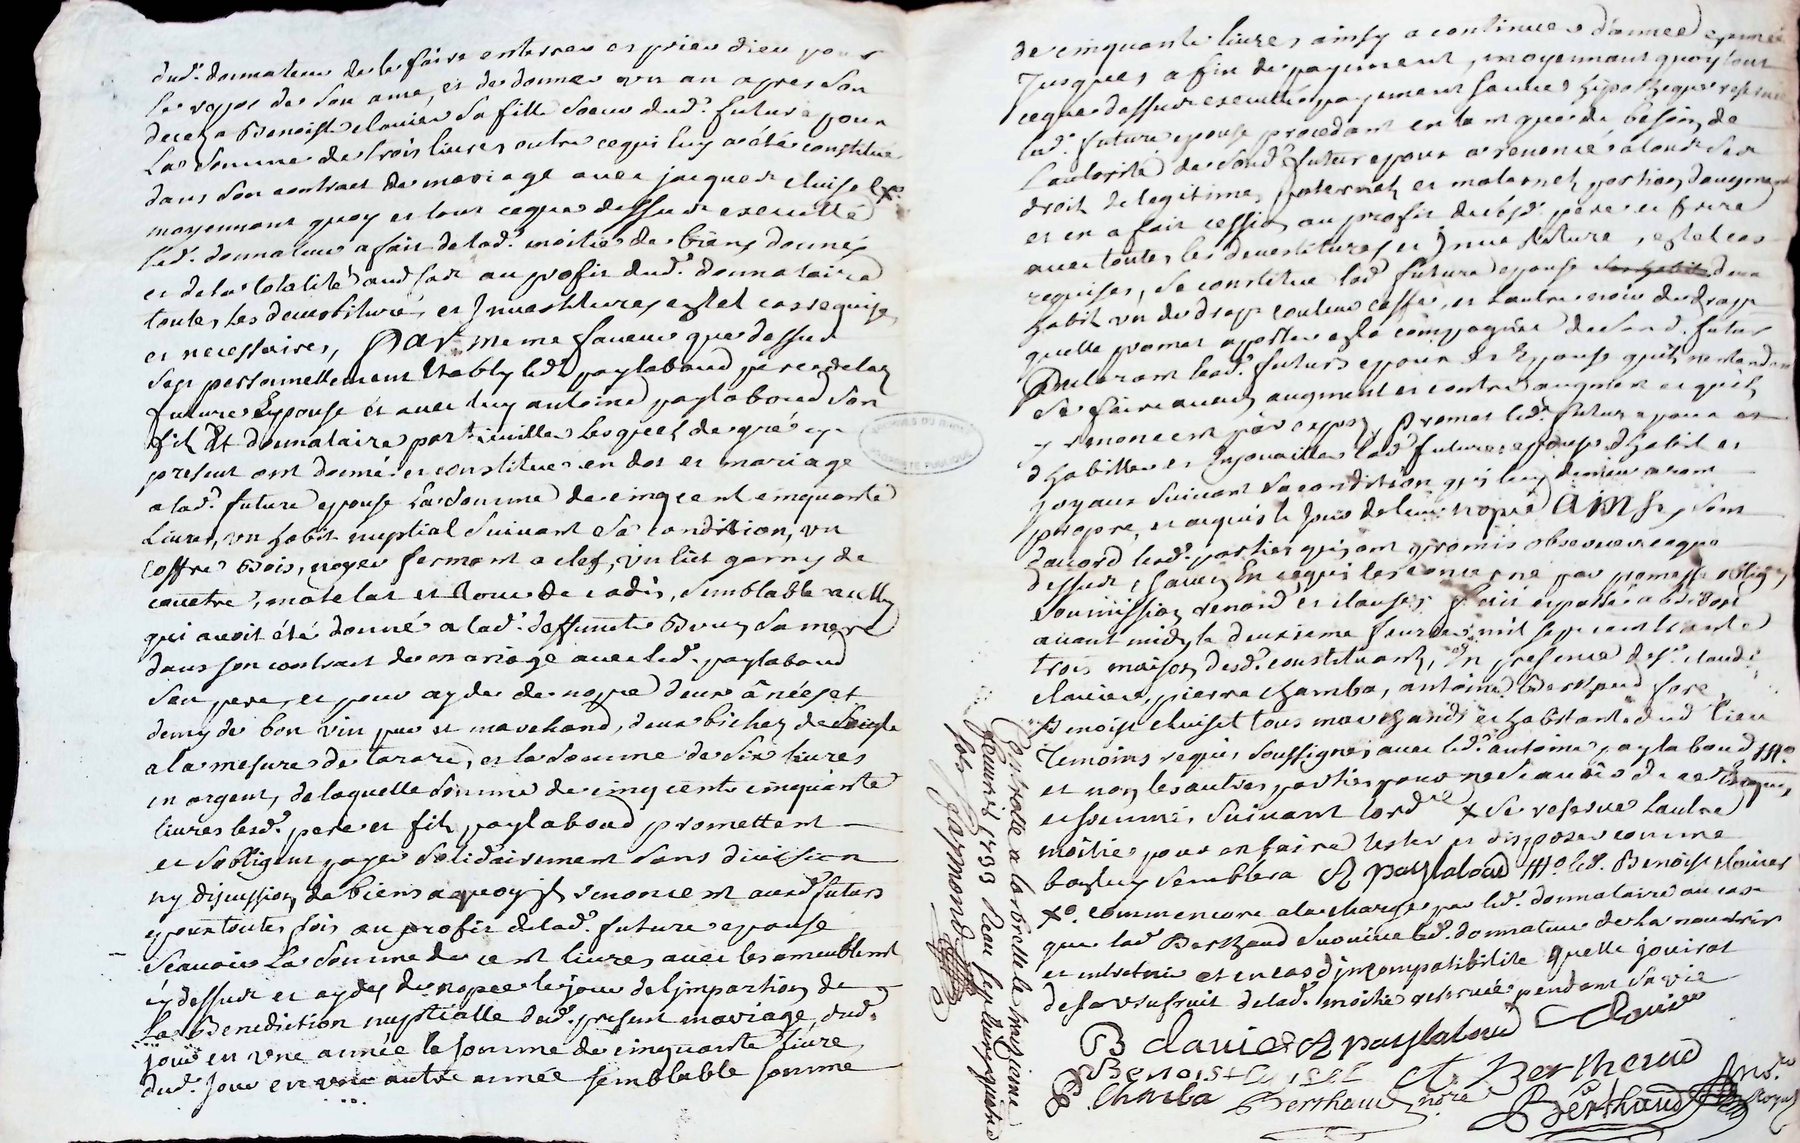 dud. donnateur de le faire enterrer et prier dieu pour
le repos de son ame, et de donner un an apres son
deces a Benoiste clavier sa fille soeur dud. futur epoux
La somme de trois livres outre ce qui luy a été constitué
dans son contract de mariage avec jacques cluisel xo.
moyennant quoy et tout ce que dessus executté
led. donnateur a fait de lad. moitié de biens donnés
et de la totalité au profit dud. donnataire
toutes les devestitures et Investitures en tel cas requises
et necessaires, Par meme faveur que dessus
s'est personnellement Etably led. paylaboud pere de lad.
future Epouse et avec luy antoine paylaboud son
fils Et donnataire lesquels de gré
present ont donné et constitué en dot et mariage
a lad. future epouse La somme de cinq cent cinquante
Livres, un habit nuptial suivant sa condition, un
coffre Bois noyer fermant a clef, un lict garny de
couettre, matelat et de cadis, semblable a celluy
qui avoit été donné a lad. deffuncte sa mere
dans son contract de mariage avec led. paylaboud
son pere, et pour ayde de nopce deux ânées et
demy de bon vin pur et marchand, deux bichez de seigle
a la mesure de tarare, et la somme de six livres
en argent, de laquelle somme de cinq cents cinquante
livres lesd. pere et fils paylaboud promettent
et s'obligent payer solidairement sans division
ny discussion de biens a quoy ils renoncent auxd. futurs
epoux toutes fois au profit de lad. future epouse
Scavoir La somme de cent livres avec les ameublement
cy dessus et aydes de nopce le jour de l'impartion de
La Benediction nuptialle dud. present mariage, dud.
jour en une année la somme de cinquante livre
dud. jour en une autre année semblable somme
de cinquante livres ainsy a continuer d'année en année
Jusques a fin de payement, moyennant quoy tout
ce que dessus executté payement sauve hypotheque reservée
lad. future epouse procedant en tant que de besoin de
L'autorité de sond. futur epoux a renoncé a tous ses
droit de legitime, paternels et maternels portion d'augment
et en a fait cession au profit desd. pere et frere
avec toutes les devestitures et Investiture en tel cas
requises, se constitue lad. future epouse deux
habit un de drap couleur caffé, et l'autre noir de drap
quelle promet apporter en la compagnie de sond. futur
Declarant lesd. futurs epoux et Epouse qu'ils n'entendent
se faire aucun augment et contre augment et qu'ils
y renoncent par exprez, Promet led. futur epoux
d'habiller et Enjouailler lad. future epouse d'habit et
joyaux suivant sa condition qui luy demeureront
propre, et acquis le jour de leur nopce Ainsy sont
d'accord lesd. parties qui ont promis observer ce que
dessus, chacun En ce qui les concerne par promesse oblig.
soumission renond. et clauses, fait et passé
avant midy le deuxieme fevrier mil sept cent trante
trois maison desd. constituants, En presence de sr. claude
clavier, pierre chamba, antoine Bertheud
Benoist cluiset tous marchands et habitants dud. lieu
Temoins requis soussignés avec led. antoine paylaboud
et non les autres parties pour ne scavoir de ce enquis
et sommés suivant l'ord.ce x se reserve l'autre
moitié pour en faire tester et disposer comme
bon luy semblera A paylaboud led. Benoist clavier
xo. comm' encore a la charge par led. donnataire au cas
que lad. Berthaud survive led. donnateur de la nourrir
et entretenir et en cas d'jncompatibilité quelle jouirat
de l'usufruit de lad. moitié reservée pendant sa vie
B clavier A paylaboud Clavier
Benoist cluiset A Bertheud
P Chamba Berthaud nore Berthaud
Controllé a larbrelle le troisieme
fevrier 1733 Recu sept livres quatre
sols Jarmond